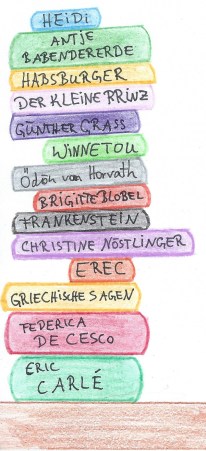 HEIDI
ANTJE
BABENDERERDE
HABSBURGER
DER KLEINE PRINZ
GÜNTHER GRASS
WINNETOU
Ödön von Horvath
BRIGITTE BLOBEL
FRANKENSTEIN
CHRISTINE NÖSTLINGER
EREC
GRIECHISCHE SAGEN
FEDERICA
DE CESCO
ERIC
CARLÉ